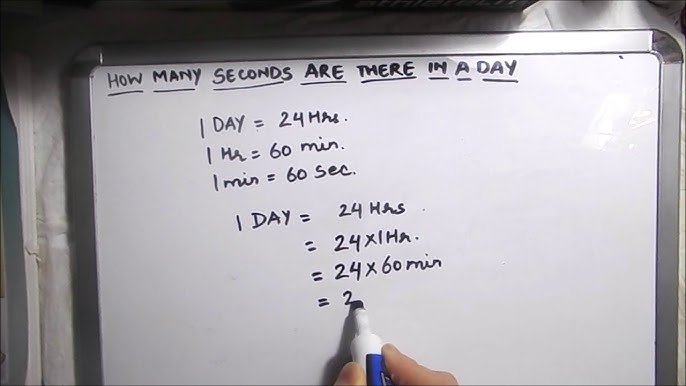 HOW MANY SECONDS ARE THERE IN A DAY
1 DAY = 24 Hrs.
1 Hr = 60 min.
1 min = 60 sec.
1 DAY = 24 Hrs.
= 24 × 1 Hr.
= 24 × 60 min
= 2